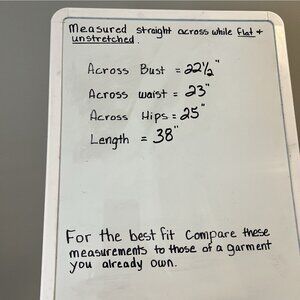 Measured straight across while flat +
unstretched.
Across Bust = 22½"
Across waist = 23"
Across Hips = 25"
Length = 38"
For the best fit Compare these
measurements to those of a garment
you already own.